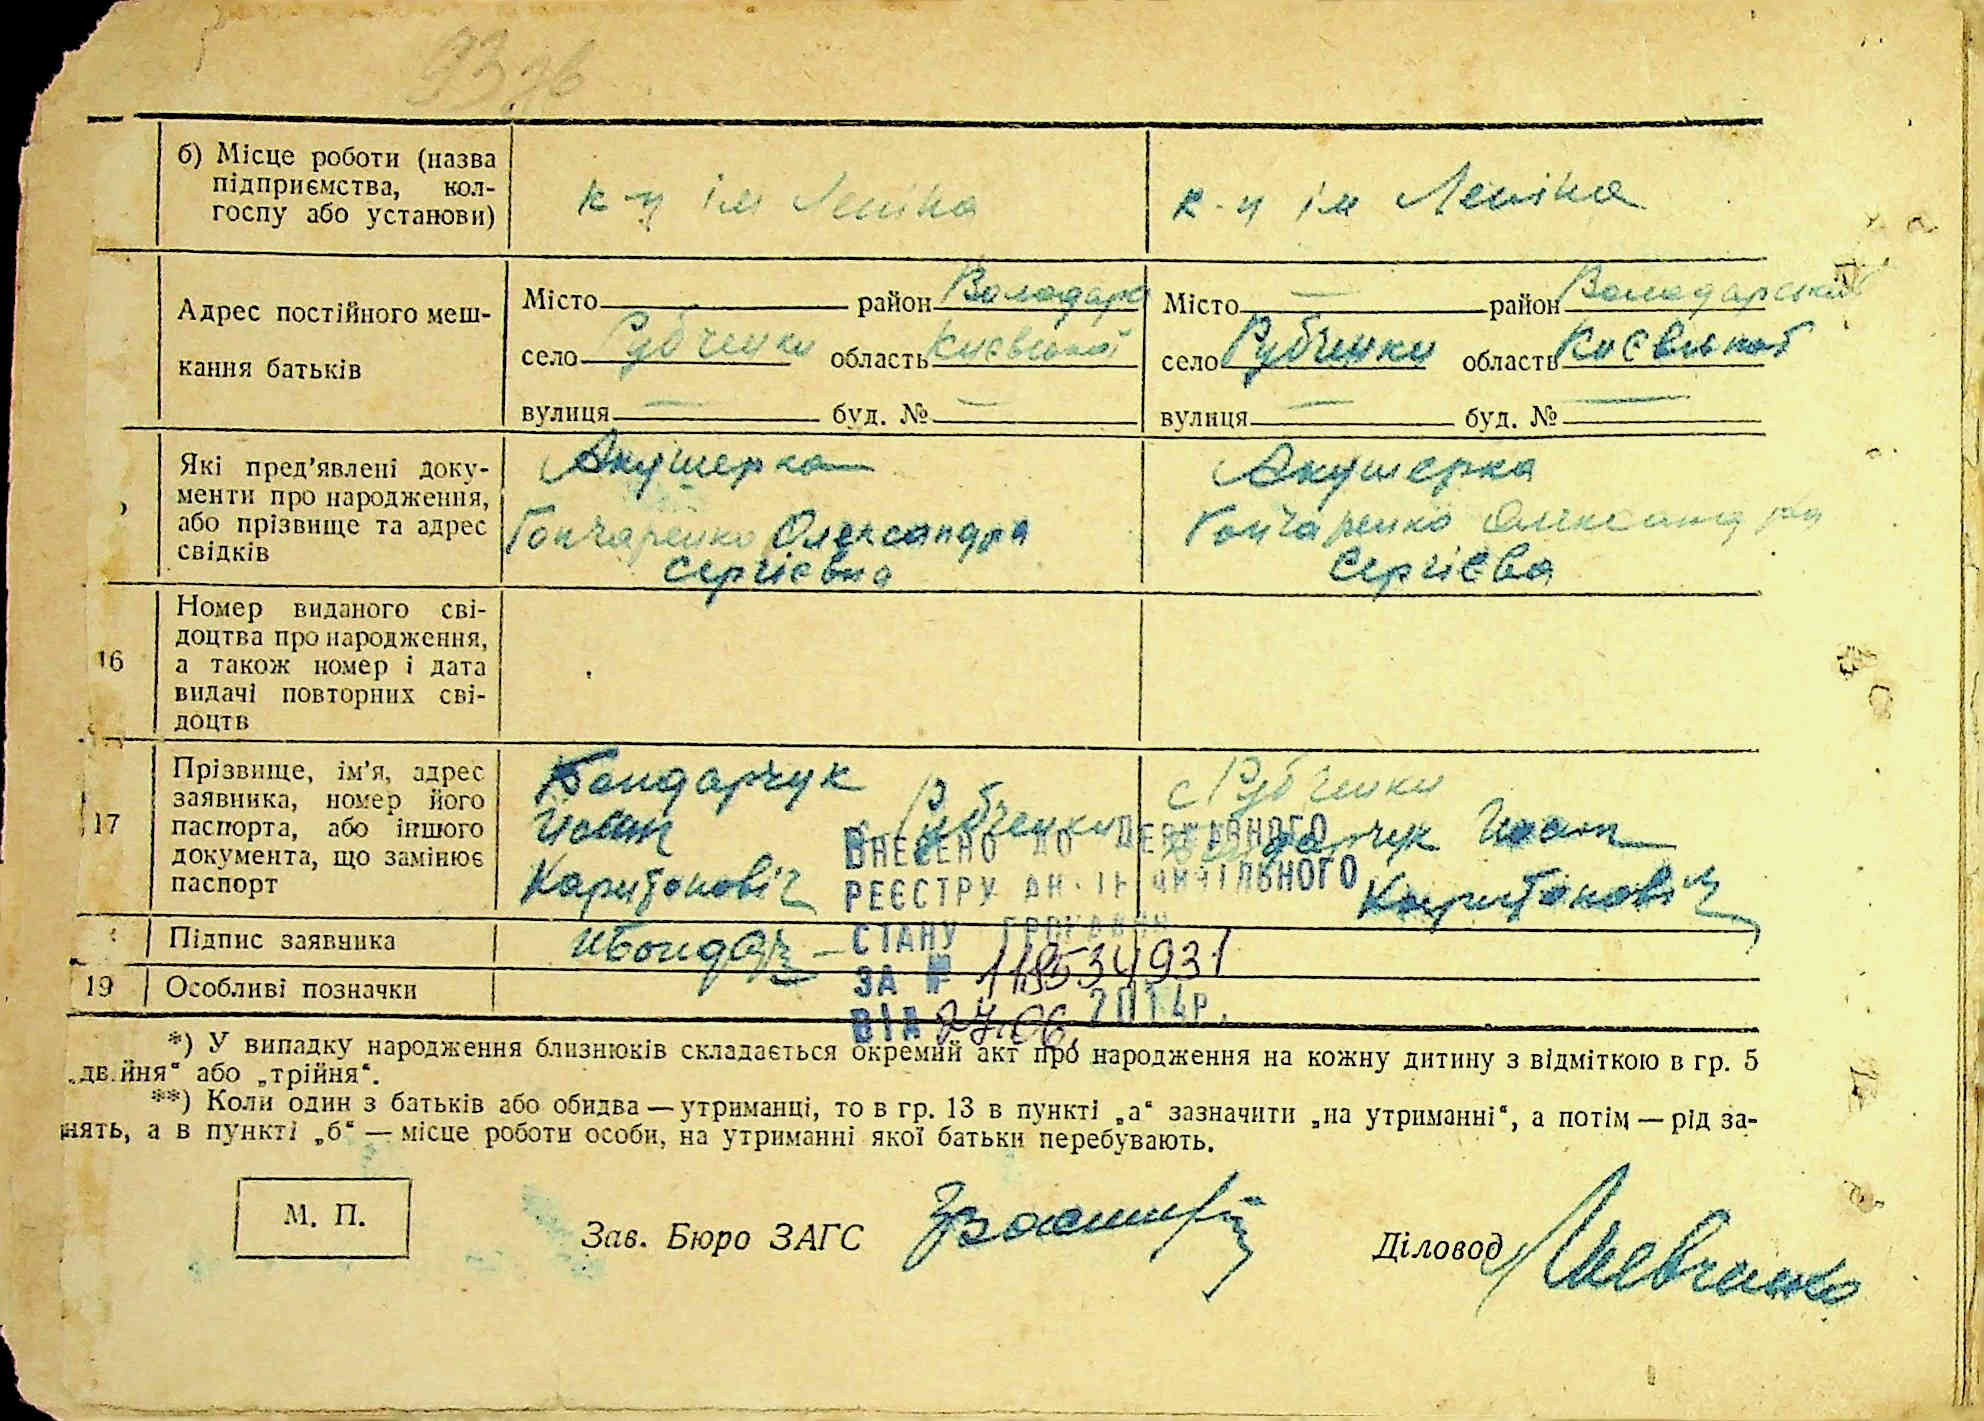 93 зв
б) Місце роботи (назва
підприємства, кол-
госпу або установи)
к-п ім Леніна
к-п ім Леніна
Адрес постійного меш-
кання батьків
Місто район Володарс
село Рубченки область Києвської
вулиця — буд. № —
Місто — район Володарський
село Рубченки область Києвської
вулиця — буд. № —
Які пред’явлені доку-
менти про народження,
або прізвище та адрес
свідків
Акушерка
Гончаренко Олександра
Сергієвна
Акушерка
Гончаренко Олександра
Сергієва
16
Номер виданого сві-
доцтва про народження,
а також номер і дата
видачі повторних сві-
доцтв
17
Прізвище, ім’я, адрес
заявника, номер його
паспорта, або іншого
документа, що замінює
паспорт
Бондарчук
Йосип Рубченки
Харитонович
с Рубченки
Бондарчук Йосип
Харитонович
Підпис заявника
ИБондар
19
Особливі позначки
ВНЕСЕНО ДО ДЕРЖАВНОГО
РЕЄСТРУ АКТІВ ЦИВІЛЬНОГО
СТАНУ ГРОМАДЯН
ЗА № 118534931
ВІД 27.06. 2014р.
*) У випадку народження близнюків складається окремий акт про народження на кожну дитину з відміткою в гр. 5
„двійня“ або „трійня“.
**) Коли один з батьків або обидва — утриманці, то в гр. 13 в пункті „а“ зазначити „на утриманні“, а потім — рід за-
нять, а в пункті „б“ — місце роботи особи, на утриманні якої батьки перебувають.
М. П.
Зав. Бюро ЗАГС
Діловод Шевченко